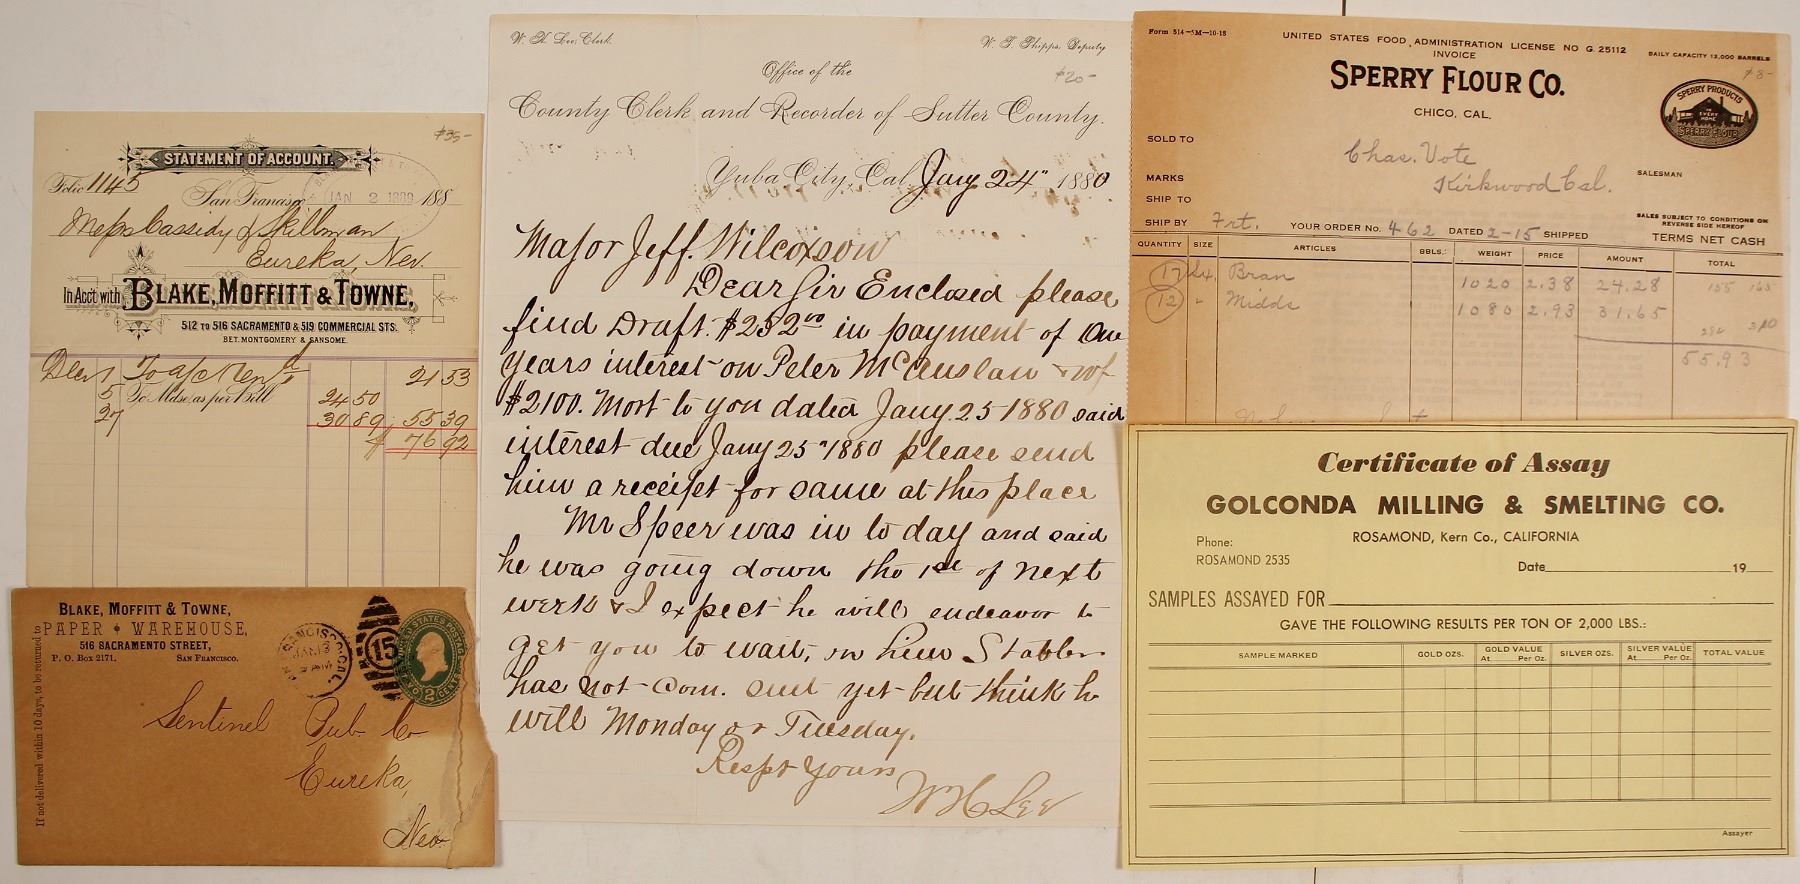 $35-
STATEMENT OF ACCOUNT.
Folio 1145
San Francisco, JAN 2 188
Mess Cassidy & Skillman
Eureka, Nev.
In Acc't with BLAKE, MOFFITT & TOWNE,
512 TO 516 SACRAMENTO & 519 COMMERCIAL STS.
BET. MONTGOMERY & SANSOME.
Decr 1 To a/c Rend 21 53
5 To Mdse. as per Bill 24 50
27 30 89 55 39
$ 76 92
BLAKE, MOFFITT & TOWNE,
PAPER WAREHOUSE,
516 SACRAMENTO STREET,
P. O. Box 2171. SAN FRANCISCO.
If not delivered within 10 days, to be returned to
FRANCISCO, CAL.
JAN 13
15
UNITED STATES POSTAGE
TWO 2 CENTS
Sentinel Pub. Co
Eureka,
Nev
W. H. Lee, Clerk. W. T. Phipps, Deputy
$20-
Office of the
County Clerk and Recorder of Sutter County.
Yuba City, Cal. Jany 24" 1880
Major Jeff. Wilcoxson
Dear Sir Enclosed please
find Draft. $252 00 in payment of One
years interest on Peter McAuslan & wf
$2100. Mort to you dated Jany. 25 1880 said
interest due Jany 25" 1880 please send
him a receipt for same at this place
Mr Speer was in to day and said
he was going down the 1st of next
week & I expect he will endeavor to
get you to wait, on him Stabler
has not com. out yet but think he
will Monday or Tuesday.
Respt Yours
W H Lee
Form 514-5M-10-18
UNITED STATES FOOD ADMINISTRATION LICENSE NO G 25112
INVOICE
DAILY CAPACITY 12,000 BARRELS
$8-
SPERRY FLOUR CO.
CHICO, CAL.
SPERRY PRODUCTS
IN EVERY HOME
SPERRY FLOUR
SOLD TO Chas. Vote
MARKS Kirkwood Cal. SALESMAN
SHIP TO
SHIP BY Frt. YOUR ORDER NO. 462 DATED 2-15 SHIPPED
SALES SUBJECT TO CONDITIONS ON
REVERSE SIDE HEREOF
TERMS NET CASH
QUANTITY SIZE ARTICLES BBLS. WEIGHT PRICE AMOUNT TOTAL
12 Bran 1020 2.38 24.28
12 " Midds 1080 2.93 31.65
55.93
Certificate of Assay
GOLCONDA MILLING & SMELTING CO.
ROSAMOND, Kern Co., CALIFORNIA
Phone:
ROSAMOND 2535
Date 19
SAMPLES ASSAYED FOR
GAVE THE FOLLOWING RESULTS PER TON OF 2,000 LBS.:
SAMPLE MARKED GOLD OZS. GOLD VALUE At Per Oz. SILVER OZS. SILVER VALUE At Per Oz. TOTAL VALUE
Assayer